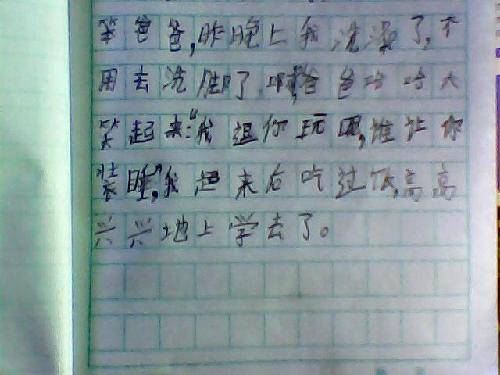 笨爸爸,昨晚上我洗澡了,不
用去洗了爸爸哈哈大
笑起来:"我逗你玩呢,谁让你
装睡"我起来后吃过饭,高高
兴兴地上学去了。